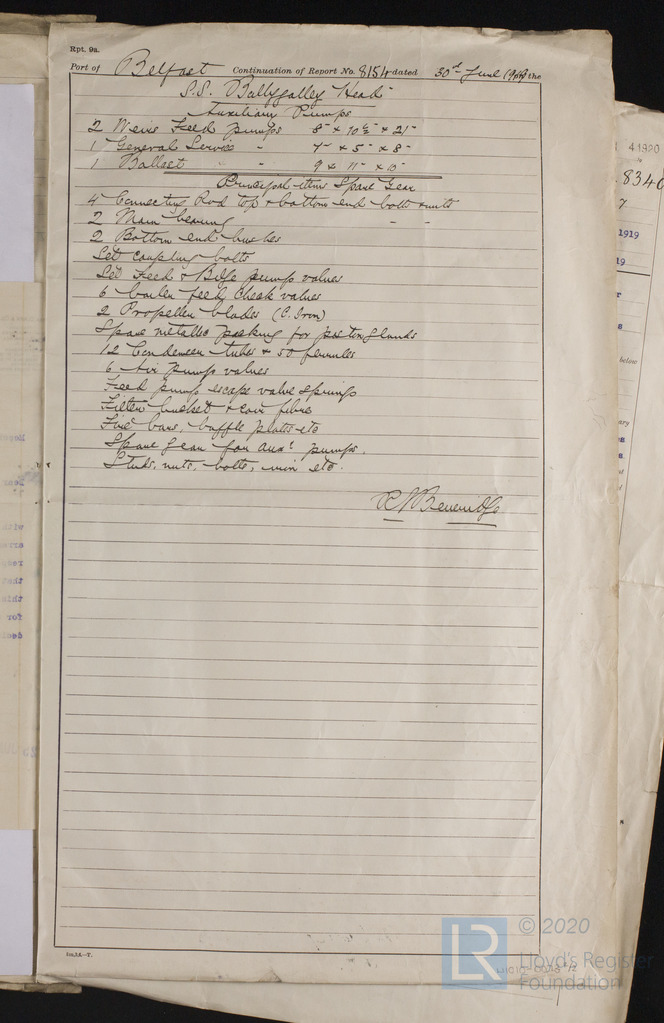 Rpt. 9a.
Port of Belfast Continuation of Report No. 8154 dated 30th June 1919 the
S.S. "Ballygalley Head"
Auxiliary Pumps
2 Weirs Feed pumps 8" x 10½" x 21"
1 General Service " 7" x 5" x 8"
1 Ballast " " 9 x 11" x 10"
Principal items Spare Gear
4 Connecting Rod top & bottom end bolts & nuts
2 Main bearing " "
2 Bottom end bushes
Set coupling bolts
Set Feed & Bilge pump valves
6 boiler feed check valves
2 Propeller blades (C. Iron)
Spare metallic packing for piston glands
12 Condenser tubes & 50 ferrules
6 Air pump valves
Feed pump escape valve springs
Filter bucket & coir fibre
Fire bars, baffle plates etc
Spare gear for auxy pumps.
Studs, nuts, bolts, iron etc.
R J Beveridge
41920
8340
7
1919
19
below
© 2020
LR
Lloyd's Register
Foundation